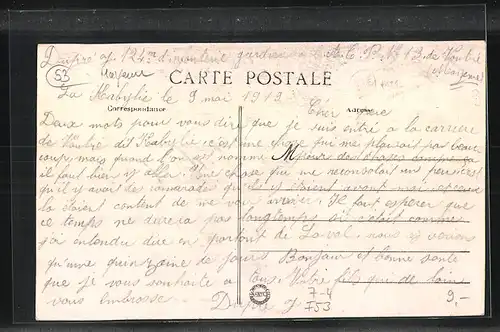 Dupré J 124me d'infanterie gardien
de Voutré
(Mayenne)
53
Monsieur
CARTE POSTALE
La Kabylie le 9 mai 1919
Correspondance
Adresse
Cher
Deux mots pour vous dire que je suis entré a la carrière
de Voutré dit Kabylie c'est une chose qui me plaisait pas beau
coup, mais quand l'on est nommé
il faut bien y aller. Une chose qui me reconsolait un peu c'est
qu'il y avait des camarades qui y étaient avant moi
la étaient content de me voir arriver. Il faut espérer que
ce temps ne durera pas longtemps si c'était comme
j'ai entendu dire en partant de Laval nous y serions
qu'une quinzaine de jours Bonjour et bonne santé
que je vous souhaite a tous. Votre fils qui de loin
vous embrasse. Dupré J
7-4
F53
9,-